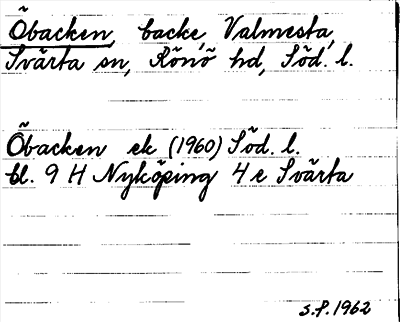 Öbacken, backe, Valmesta,
Svärta sn, Rönö hd, Söd. l.
Öbacken ek (1960) Söd. l.
bl. 9 H Nyköping 4 e Svärta
S.P. 1962